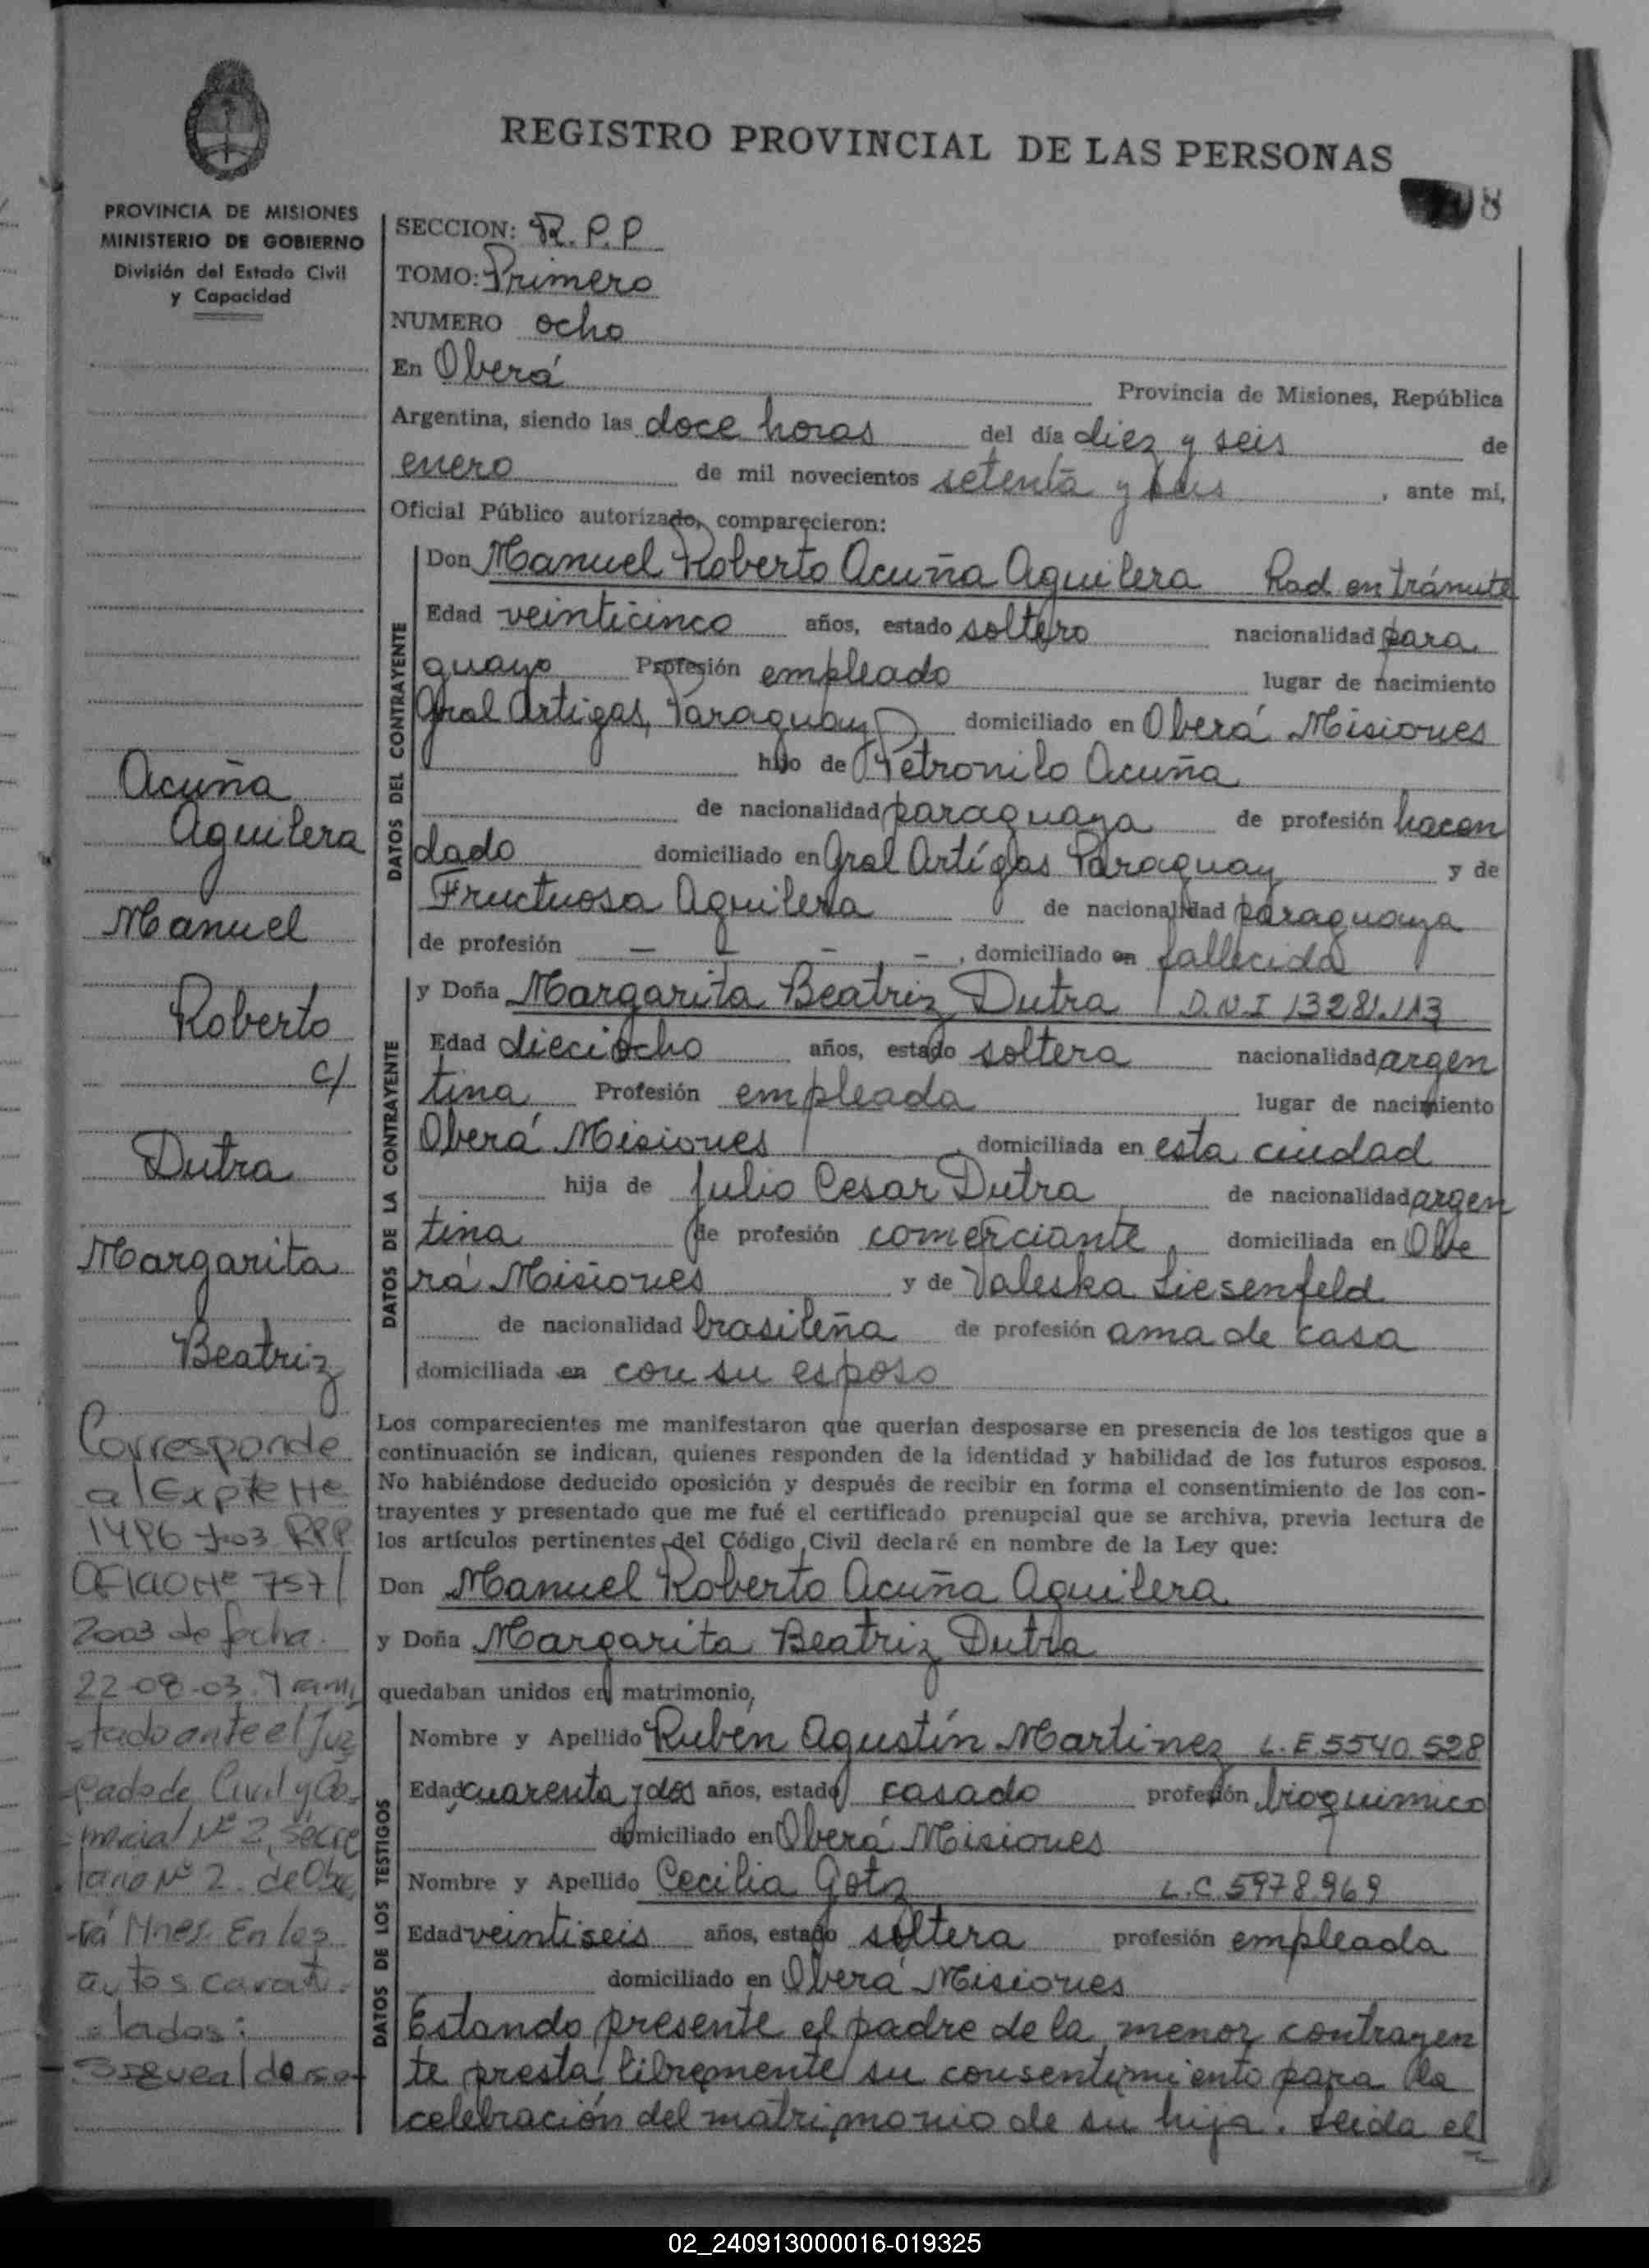 REGISTRO PROVINCIAL DE LAS PERSONAS
8
PROVINCIA DE MISIONES
MINISTERIO DE GOBIERNO
División del Estado Civil
y Capacidad
SECCION: R.P.P
TOMO: Primero
NUMERO ocho
En Oberá Provincia de Misiones, República
Argentina, siendo las doce horas del día diez y seis de
enero de mil novecientos setenta y seis, ante mí,
Oficial Público autorizado, comparecieron:
DATOS DEL CONTRAYENTE
Don Manuel Roberto Acuña Aguilera Rad en trámite
Edad veinticinco años, estado soltero nacionalidad para
guayo Profesión empleado lugar de nacimiento
Gral Artigas, Paraguay domiciliado en Oberá Misiones
hijo de Petronilo Acuña
de nacionalidad paraguaya de profesión hacen
dado domiciliado en Gral Artigas Paraguay y de
Fructuosa Aguilera de nacionalidad paraguaya
de profesión - - - -, domiciliado en fallecida
DATOS DE LA CONTRAYENTE
y Doña Margarita Beatriz Dutra D.N.I 13281.113
Edad dieciocho años, estado soltera nacionalidad argen
tina Profesión empleada lugar de nacimiento
Oberá Misiones, domiciliada en esta ciudad
hija de Julio Cesar Dutra de nacionalidad argen
tina de profesión comerciante, domiciliada en Obe
rá Misiones y de Valeska Liesenfeld
de nacionalidad brasileña de profesión ama de casa
domiciliada en con su esposo
Los comparecientes me manifestaron que querían desposarse en presencia de los testigos que a
continuación se indican, quienes responden de la identidad y habilidad de los futuros esposos.
No habiéndose deducido oposición y después de recibir en forma el consentimiento de los con-
trayentes y presentado que me fué el certificado prenupcial que se archiva, previa lectura de
los artículos pertinentes del Código Civil declaré en nombre de la Ley que:
Don Manuel Roberto Acuña Aguilera
y Doña Margarita Beatriz Dutra
quedaban unidos en matrimonio,
DATOS DE LOS TESTIGOS
Nombre y Apellido Rubén Agustín Martinez L.E 5540.528
Edad cuarenta y dos años, estado casado profesión bioquimico
domiciliado en Oberá Misiones
Nombre y Apellido Cecilia Gotz L.C. 5978.969
Edad veintiseis años, estado soltera profesión empleada
domiciliado en Oberá Misiones
Estando presente el padre de la menor contrayen
te presta libremente su consentimiento para la
celebración del matrimonio de su hija. Leida el
Acuña
Aguilera
Manuel
Roberto
c/
Dutra
Margarita
Beatriz
Corresponde
al Expte Nº
1496 RPP
OFICIO Nº 757/
2003 de fecha
22-08-03. Trami
tado ante el Juz
gado de Civil y Co
mercial Nº 2, Secre
taria Nº 2. de Obe
rá Mnes. En los
autos carat
lados:
Sigue al dorso
02_240913000016-019325